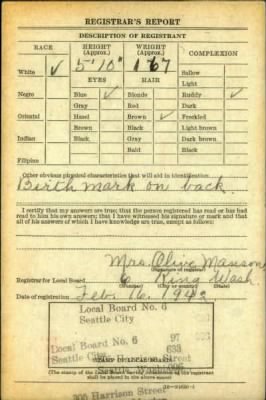 REGISTRAR'S REPORT
DESCRIPTION OF REGISTRANT
RACE HEIGHT (Approx.) WEIGHT (Approx.) COMPLEXION
White ✓ 5' 10" 167 Sallow
Light
EYES HAIR
Negro Blue ✓ Blonde Ruddy ✓
Gray Red Dark
Oriental Hazel Brown ✓ Freckled
Brown Black Light brown
Indian Black Gray Dark brown
Bald Black
Filipino
Other obvious physical characteristics that will aid in identification
Birth mark on back.
I certify that my answers are true; that the person registered has read or has had
read to him his own answers; that I have witnessed his signature or mark and that
all of his answers of which I have knowledge are true, except as follows:
Mrs. Olive Manson
(Signature of registrar)
Registrar for Local Board 6 King Wash.
Date of registration Feb. 16, 1942
Local Board No. 6
Seattle City
Local Board No. 6 97
Seattle City 033
(STAMP OF LOCAL BOARD)
Street
Seattle, Wash.
(The stamp of the Local Board having jurisdiction of the registrant
shall be placed in the above space)
305 Harrison Street